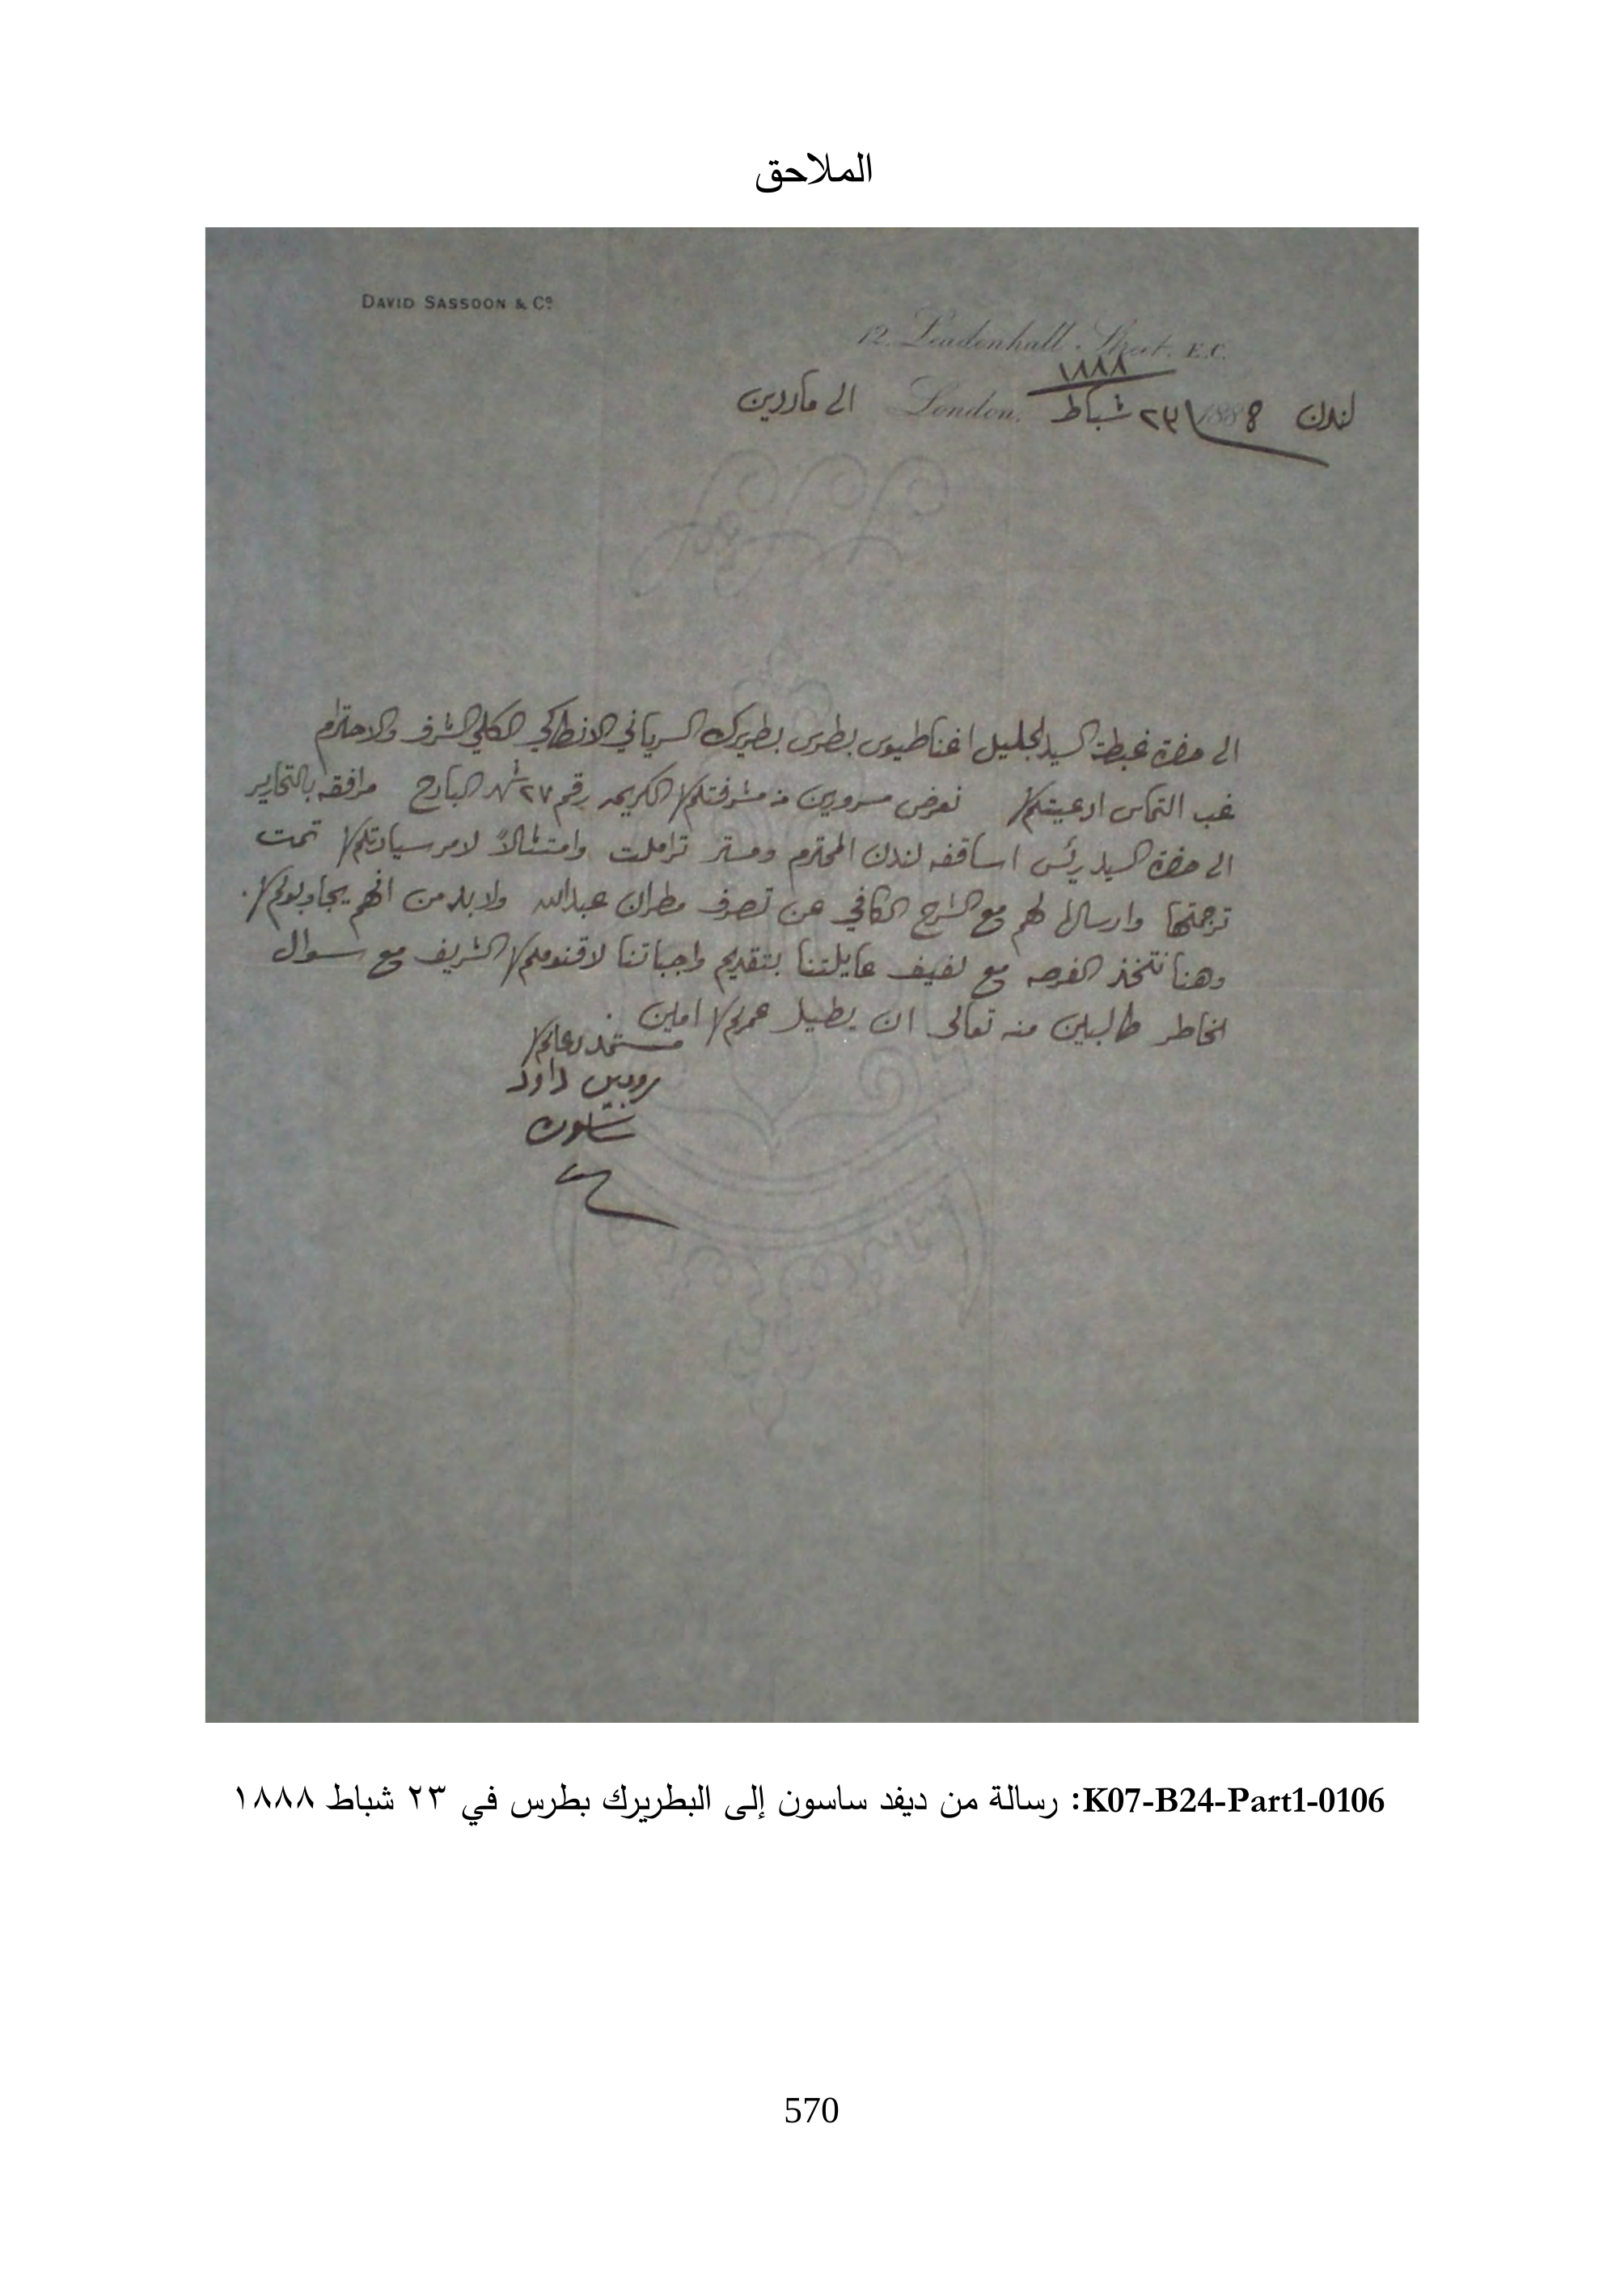 الملاحق
DAVID SASSOON & Co.
12. Leadenhall Street. E.C.
١٨٨٨
لندن 1888 ٢٣ شباط London. الى ماردين
الى حضرة غبطة السيد الجليل اغناطيوس بطرس بطريرك السرياني الانطاكي الكلي الشرف والاحترام
غب التماس ادعيتكم نعرض مسرورين مشرفتكم الكريمه رقم ٢٧ شهر البارح مرافقه بالتحارير
الى حضرة السيد رئس اساقفه لندن المحترم ومستر تراملت وامتثالاً لامر سيادتكم تمت
ترجمتها وارسالها لهم مع الشرح الكافي عن تصرف مطران عبدالله ولا بد من انهم يجاوبوكم.
وهنا نتخذ الفرصه مع لفيف عايلتنا بتقديم واجباتنا لاقنومكم الشريف مع سوال
الخاطر طالبين منه تعالى ان يطيل عمركم امين.
مستمد دعاكم
روبين داود
ساسون
K07-B24-Part1-0106: رسالة من ديفد ساسون إلى البطريرك بطرس في ٢٣ شباط ١٨٨٨
570